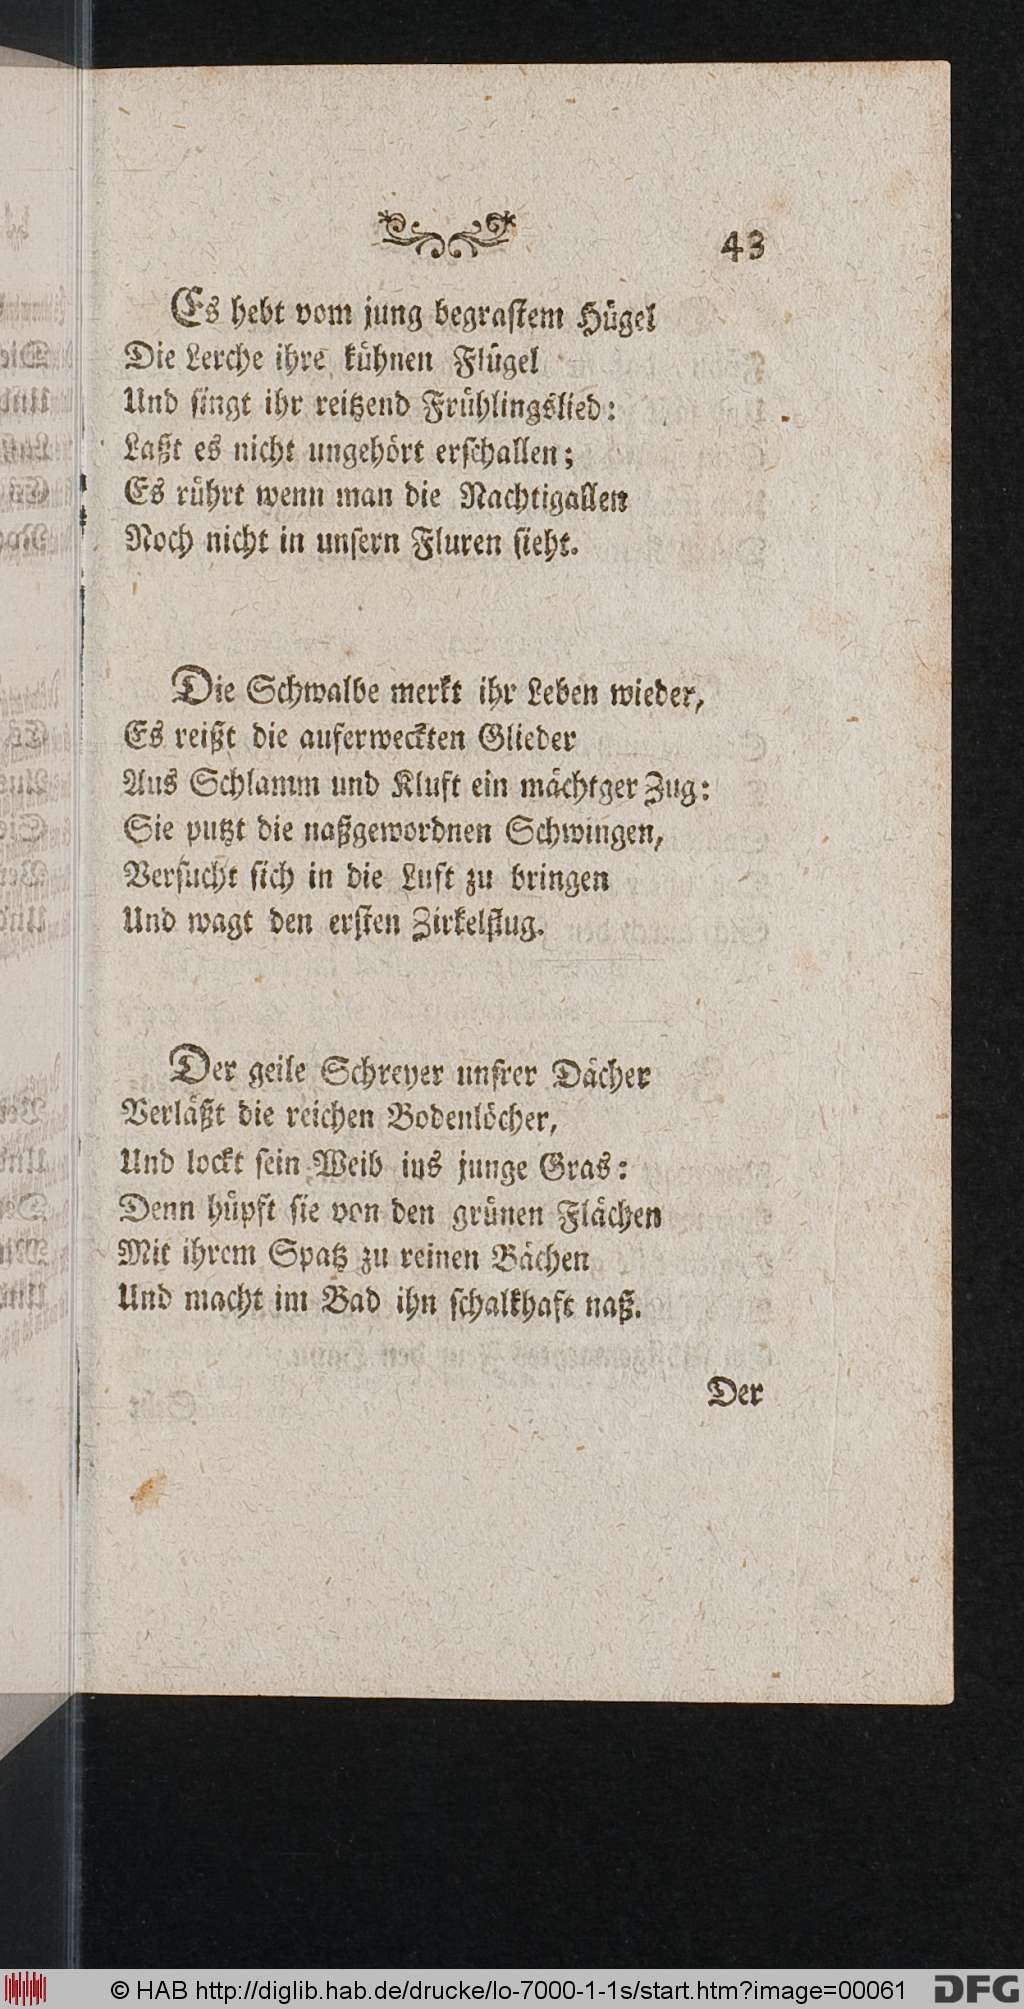 43
Es hebt vom jung begraſtem Hügel
Die Lerche ihre kühnen Flügel
Und ſingt ihr reitzend Frühlingslied:
Laßt es nicht ungehört erſchallen;
Es rührt wenn man die Nachtigallen
Noch nicht in unſern Fluren ſieht.
Die Schwalbe merkt ihr Leben wieder,
Es reißt die auferweckten Glieder
Aus Schlamm und Kluft ein mächtger Zug:
Sie putzt die naßgewordnen Schwingen,
Verſucht ſich in die Luft zu bringen
Und wagt den erſten Zirkelflug.
Der geile Schreyer unſrer Dächer
Verläßt die reichen Bodenlöcher,
Und lockt ſein Weib ins junge Gras:
Denn hüpft ſie von den grünen Flächen
Mit ihrem Spatz zu reinen Bächen
Und macht im Bad ihn ſchalkhaft naß.
Der
© HAB http://diglib.hab.de/drucke/lo-7000-1-1s/start.htm?image=00061
DFG